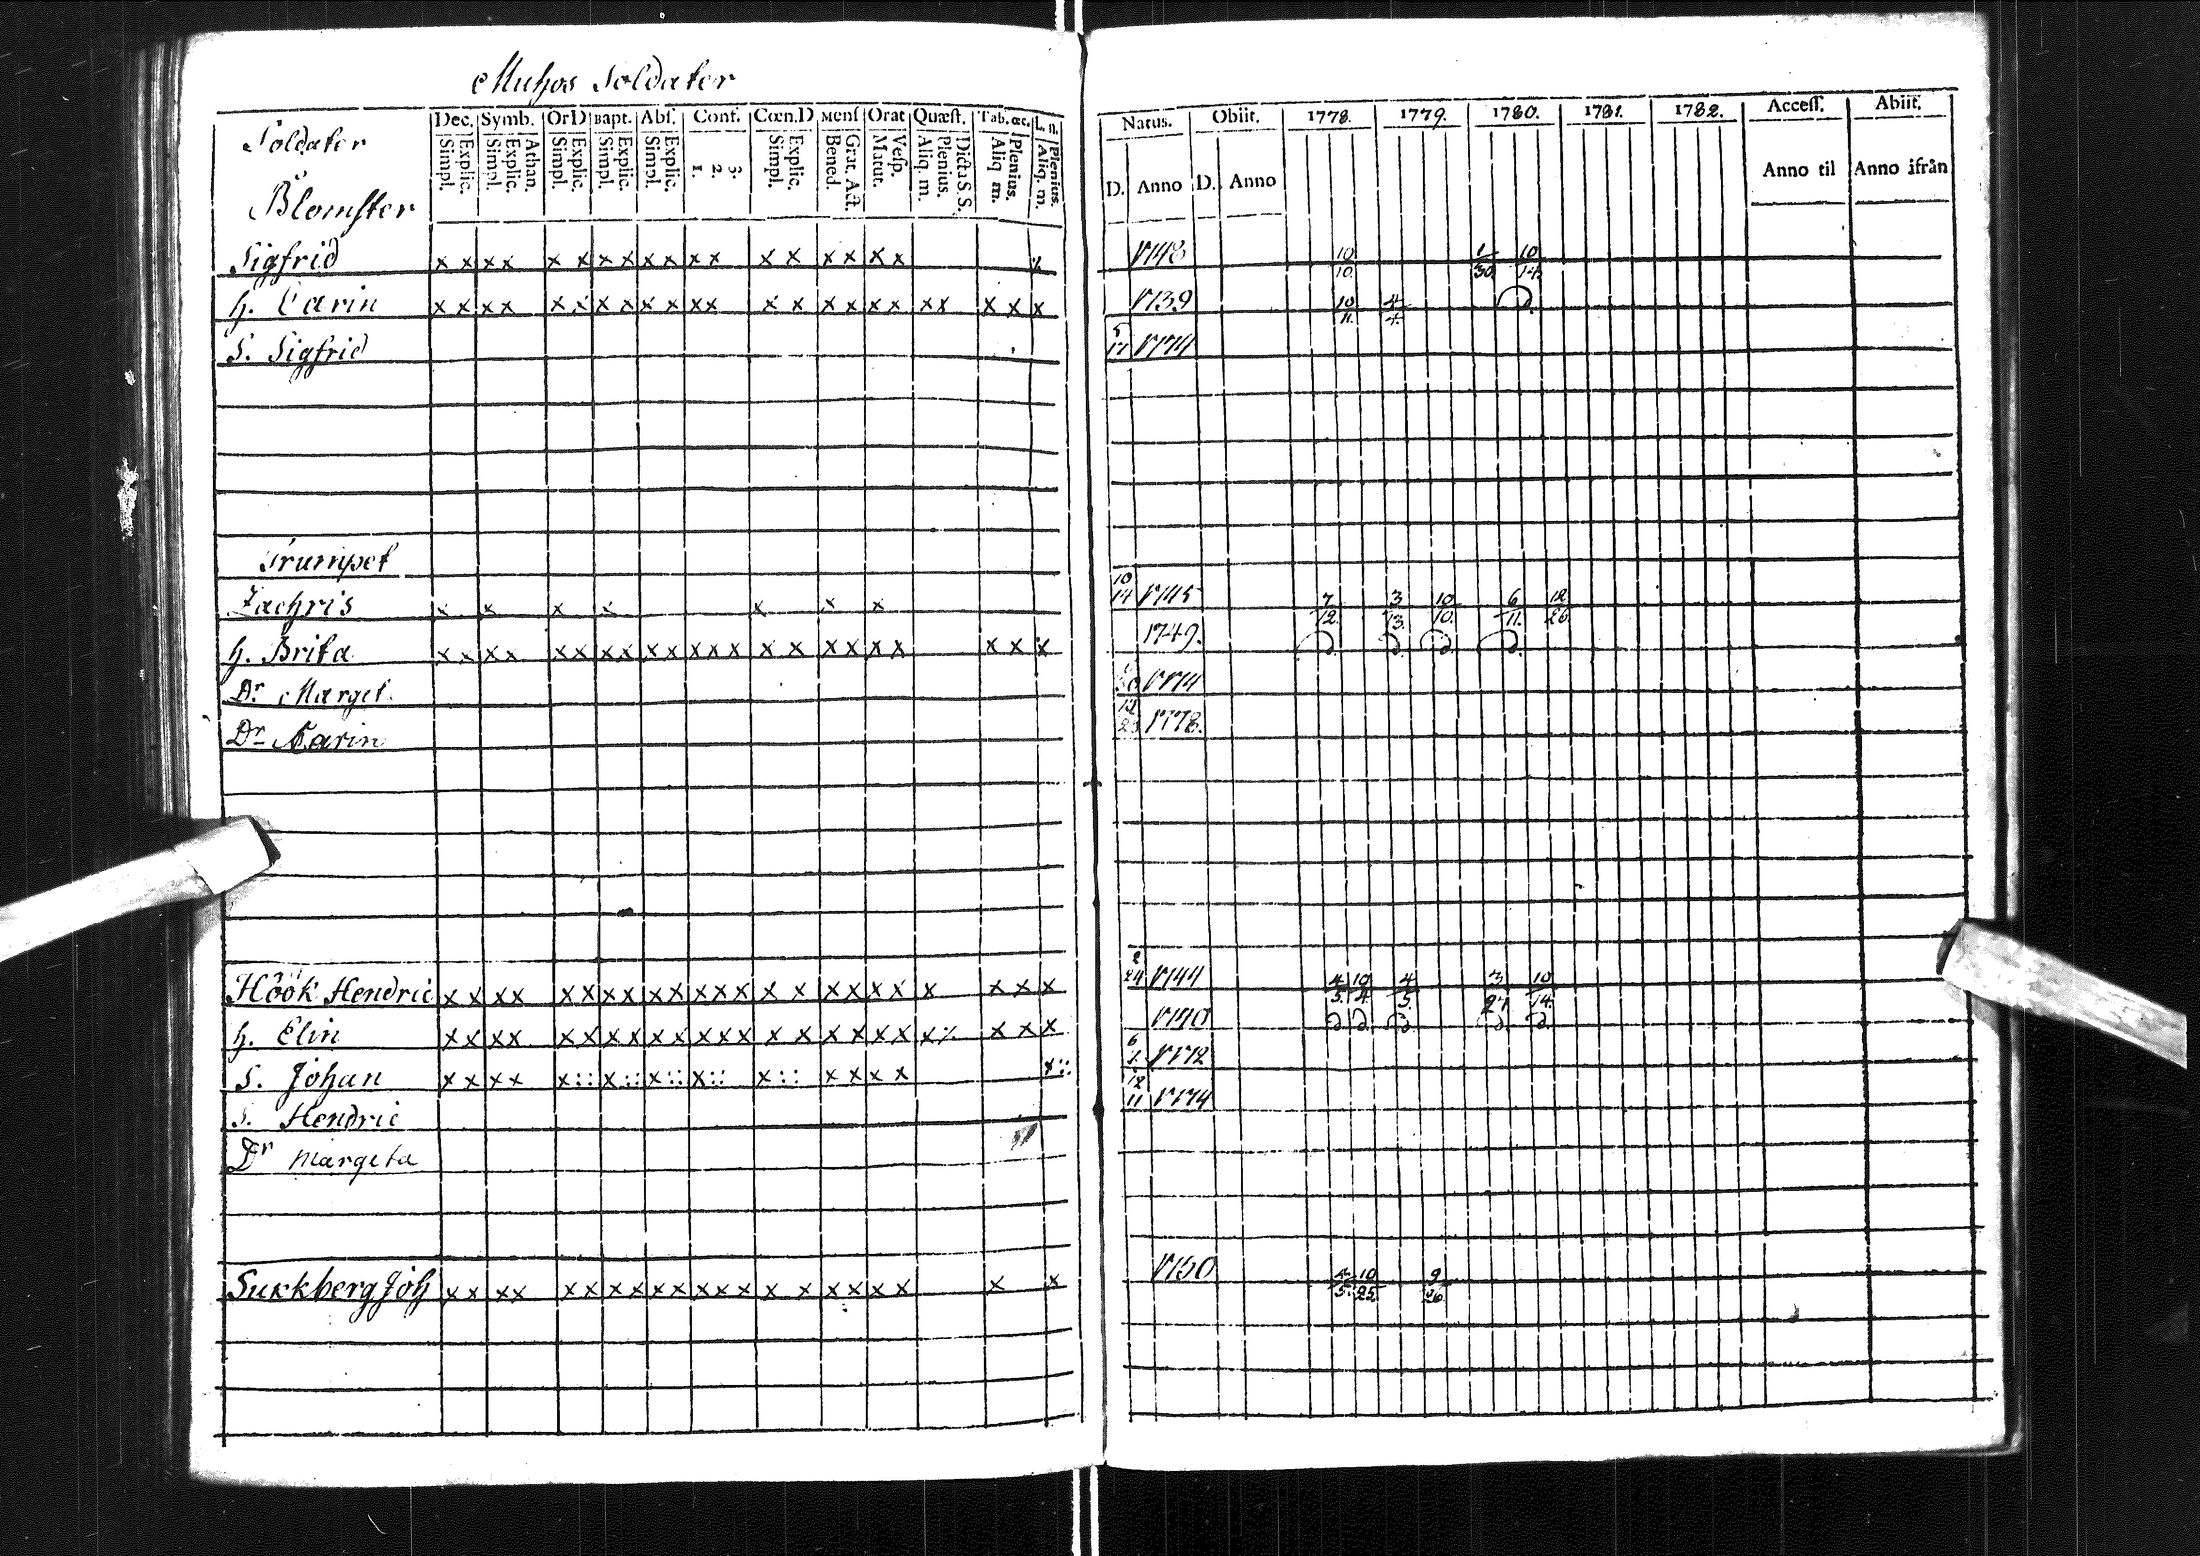 Muhos Soldater
Dec. Symb. OrD Bapt. Abs. Conf. Cœn.D Mens Orat Quæst. Tab.œc. L. n.
Soldater
Explic. Simpl. Athan. Explic. Simpl. Explic. Simpl. Explic. Simpl. Explic. Simpl. 3. 2 1. Explic. Simpl. Grat. Act. Bened. Vesp. Matut. Dicta S. S. Plenius. Aliq. m. Plenius. Aliq m. Plenius. Aliq. m.
Blomster
Sigfrid x x x x x x x x x x x x x x x x x x
h. Carin x x x x x x x x x x x x x x x x x x x x x x x
S. Sigfrid
Trumpet
Zachris x x x x x x x
h. Brita x x x x x x x x x x x x x x x x x x x x x x
Dr Marget.
Dr Karin
Höök Hendric x x x x x x x x x x x x x x x x x x x x x x x
h. Elin x x x x x x x x x x x x x x x x x x x x x x x
S. Johan x x x x x:: x:: x:: x:: x:: x x x x x::
S. Hendric
Dr Margeta
Sukkberg Joh x x x x x x x x x x x x x x x x x x x x x
Natus. Obiit. 1778. 1779. 1780. 1781. 1782. Access. Abiit.
D. Anno D. Anno Anno til Anno ifrån
1748 10/10. 1/30 10/14.
1739 10/11. 4/4.
5/17 1774
10/14 1745 7/12. 3/13. 10/10. 6/11. 12/26
1749.
1774
12/23 1778.
2/24 1744 4/5. 10/4. 4/5. 3/27 10/14.
1740
6/1. 1772
12/11 1774
1750 4/5. 10/25. 9/26.